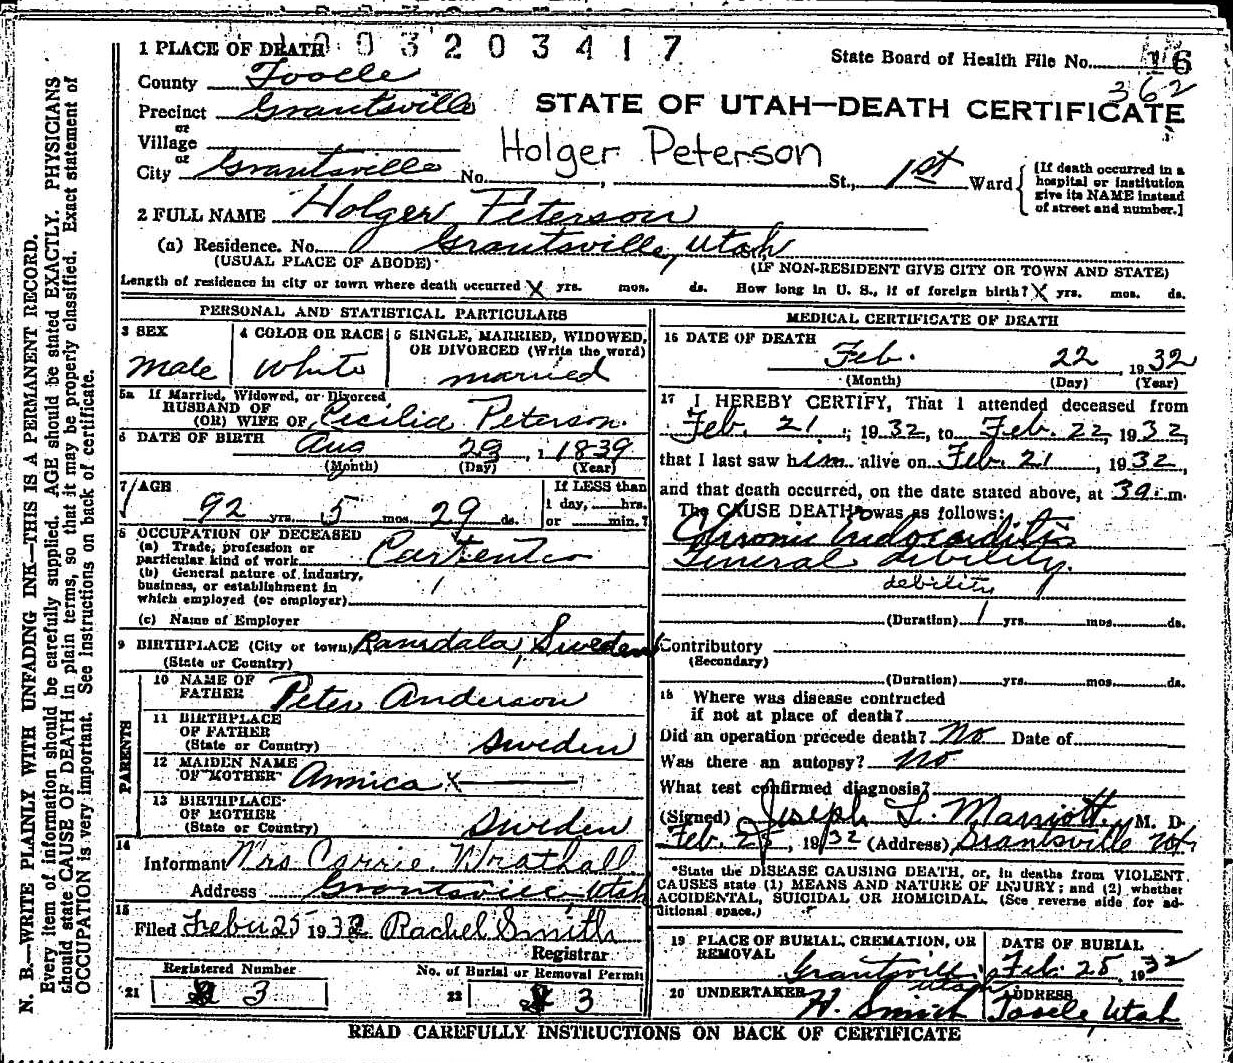 1 PLACE OF DEATH 003203417
State Board of Health File No. 16
362
County Tooele
Precinct Grantsville
STATE OF UTAH—DEATH CERTIFICATE
or
Village
or
Holger Peterson
City Grantsville No. , St., 1st Ward
[If death occurred in a
hospital or institution
give its NAME instead
of street and number.]
2 FULL NAME Holger Peterson
(a) Residence. No. Grantsville, Utah
(USUAL PLACE OF ABODE) (IF NON-RESIDENT GIVE CITY OR TOWN AND STATE)
Length of residence in city or town where death occurred X yrs. mos. ds. How long in U. S., if of foreign birth? X yrs. mos. ds.
PERSONAL AND STATISTICAL PARTICULARS
3 SEX
Male
4 COLOR OR RACE
White
5 SINGLE, MARRIED, WIDOWED,
OR DIVORCED (Write the word)
married
5a If Married, Widowed, or Divorced
HUSBAND OF
(OR) WIFE OF Cecilia Peterson.
6 DATE OF BIRTH Aug 23, 1839
(Month) (Day) (Year)
7 AGE
92 yrs. 5 mos. 29 ds.
If LESS than
1 day, hrs.
or min.?
8 OCCUPATION OF DECEASED
(a) Trade, profession or
particular kind of work Carpenter
(b) General nature of industry,
business, or establishment in
which employed (or employer)
(c) Name of Employer
9 BIRTHPLACE (City or town) Ramdala, Sweden
(State or Country)
PARENTS
10 NAME OF
FATHER Peter Anderson
11 BIRTHPLACE
OF FATHER
(State or Country) Sweden
12 MAIDEN NAME
OF MOTHER Annica X
13 BIRTHPLACE
OF MOTHER
(State or Country) Sweden
14
Informant Mrs Carrie Wrathall
Address Grantsville, Utah
15
Filed Febu 25 1932 Rachel Smith
Registrar
Registered Number
21 3
No. of Burial or Removal Permit
22 3
MEDICAL CERTIFICATE OF DEATH
16 DATE OF DEATH
Feb. 22, 1932
(Month) (Day) (Year)
17 I HEREBY CERTIFY, That I attended deceased from
Feb. 21, 1932, to Feb. 22, 1932,
that I last saw him alive on Feb. 21, 1932,
and that death occurred, on the date stated above, at 3 a.m.
The CAUSE DEATH was as follows:
Chronic Endocarditis
General debility.
debility
(Duration) 1 yrs. mos. ds.
Contributory
(Secondary)
(Duration) yrs. mos. ds.
18 Where was disease contracted
if not at place of death?
Did an operation precede death? No Date of
Was there an autopsy? No
What test confirmed diagnosis?
(Signed) Joseph L. Marriott, M. D.
Feb. 25, 1932 (Address) Grantsville Utah
*State the DISEASE CAUSING DEATH, or, in deaths from VIOLENT
CAUSES state (1) MEANS AND NATURE OF INJURY; and (2) whether
ACCIDENTAL, SUICIDAL OR HOMICIDAL. (See reverse side for ad-
ditional space.)
19 PLACE OF BURIAL, CREMATION, OR
REMOVAL
Grantsville,
Utah
DATE OF BURIAL
Feb. 25, 1932
20 UNDERTAKER
H. Smith
ADDRESS
Tooele, Utah
READ CAREFULLY INSTRUCTIONS ON BACK OF CERTIFICATE
N. B.—WRITE PLAINLY WITH UNFADING INK—THIS IS A PERMANENT RECORD.
Every item of information should be carefully supplied. AGE should be stated EXACTLY. PHYSICIANS
should state CAUSE OF DEATH in plain terms, so that it may be properly classified. Exact statement of
OCCUPATION is very important. See instructions on back of certificate.